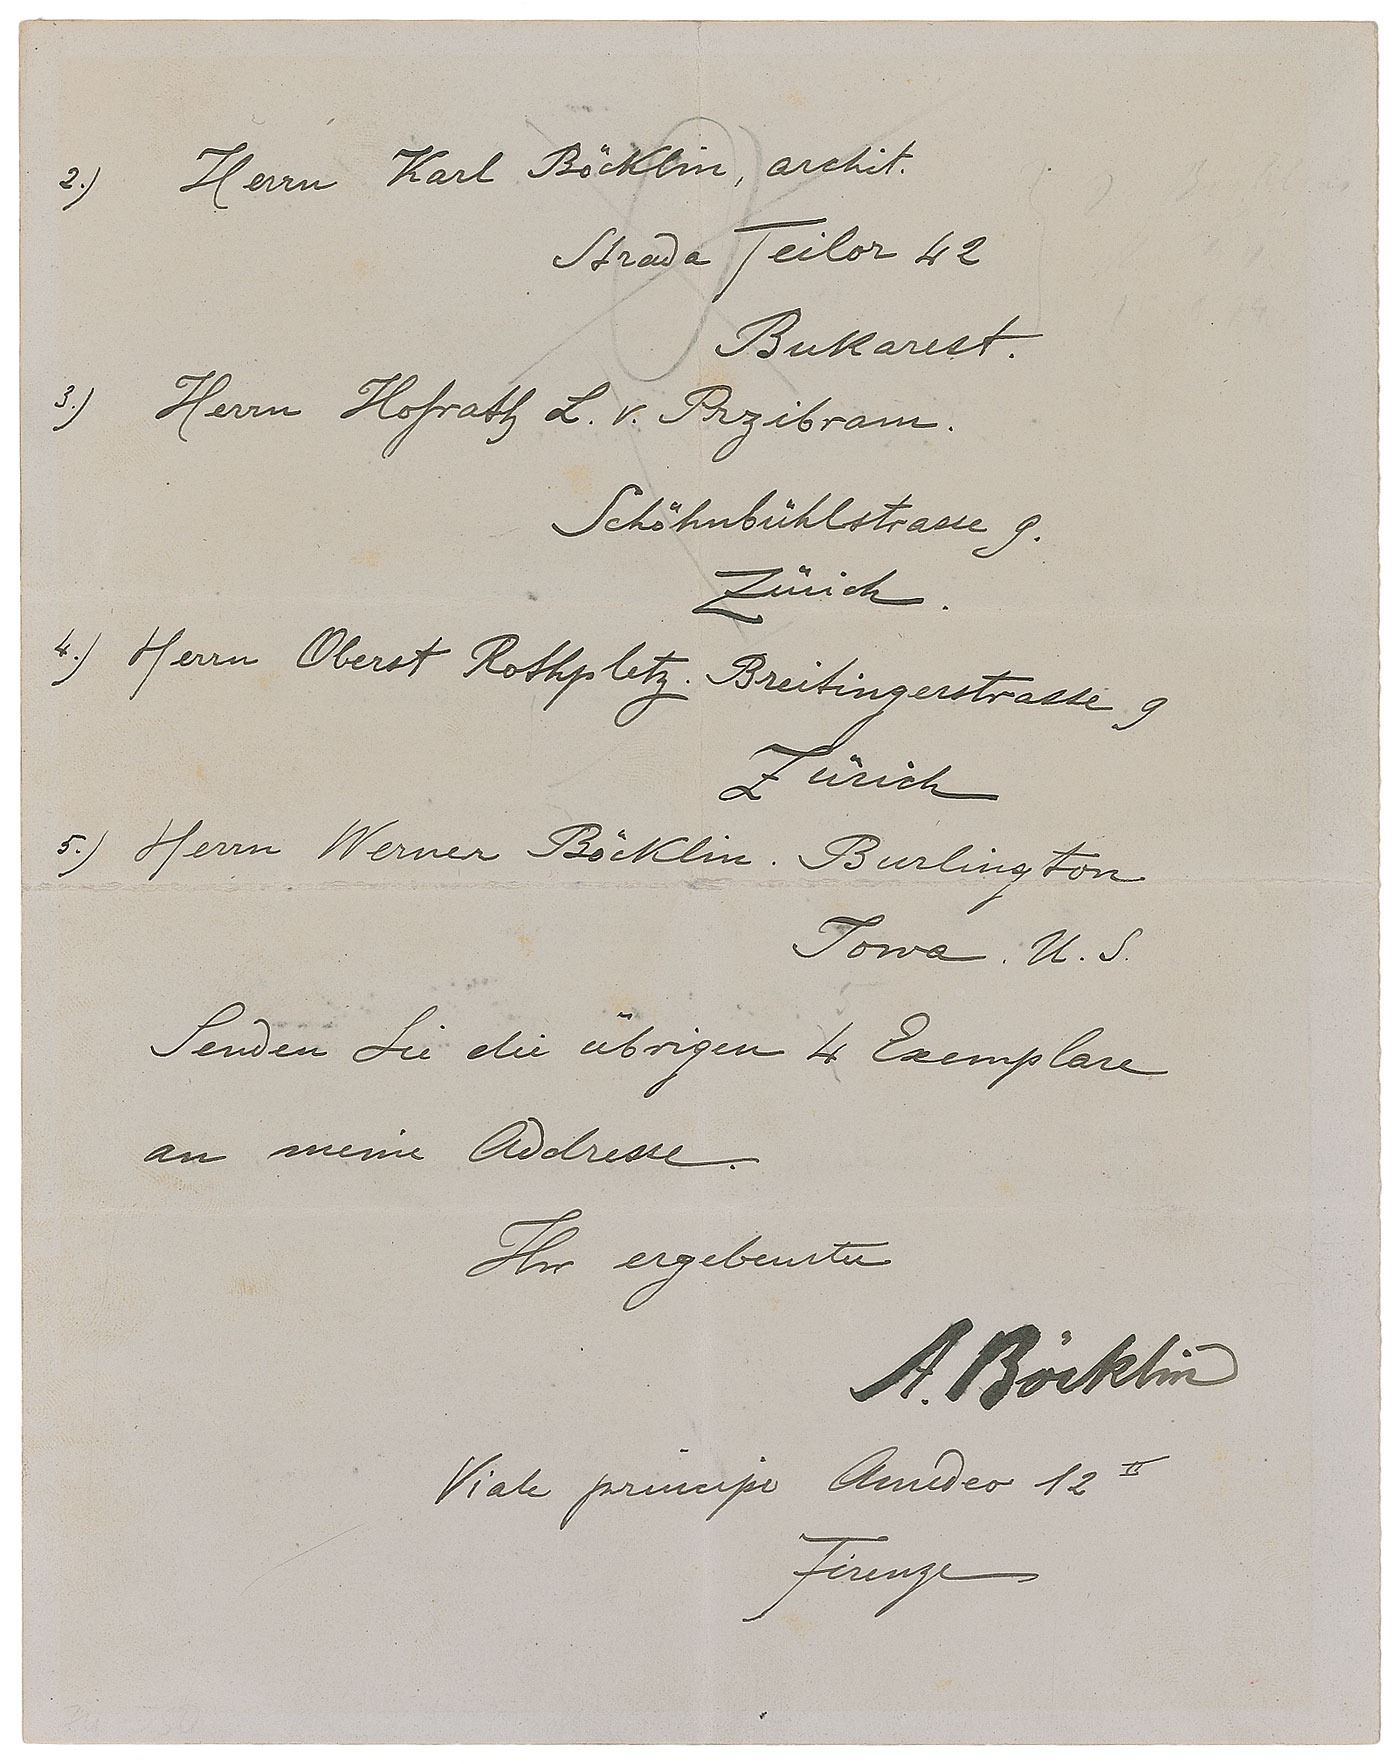 2.) Herrn Karl Böcklin, archit.
Strada Teilor 42
Bukarest.
3.) Herrn Hofrath L. v. Przibram.
Schöhnbühlstrasse 9.
Zürich.
4.) Herrn Oberst Rothpletz. Breitingerstrasse 9
Zürich
5.) Herrn Werner Böcklin. Burlington
Iowa. U. S.
Senden Sie die übrigen 4 Exemplare
an meine Addresse.
Ihr ergebenster
A. Böcklin
Viale principe Amedeo 12 II
Firenze